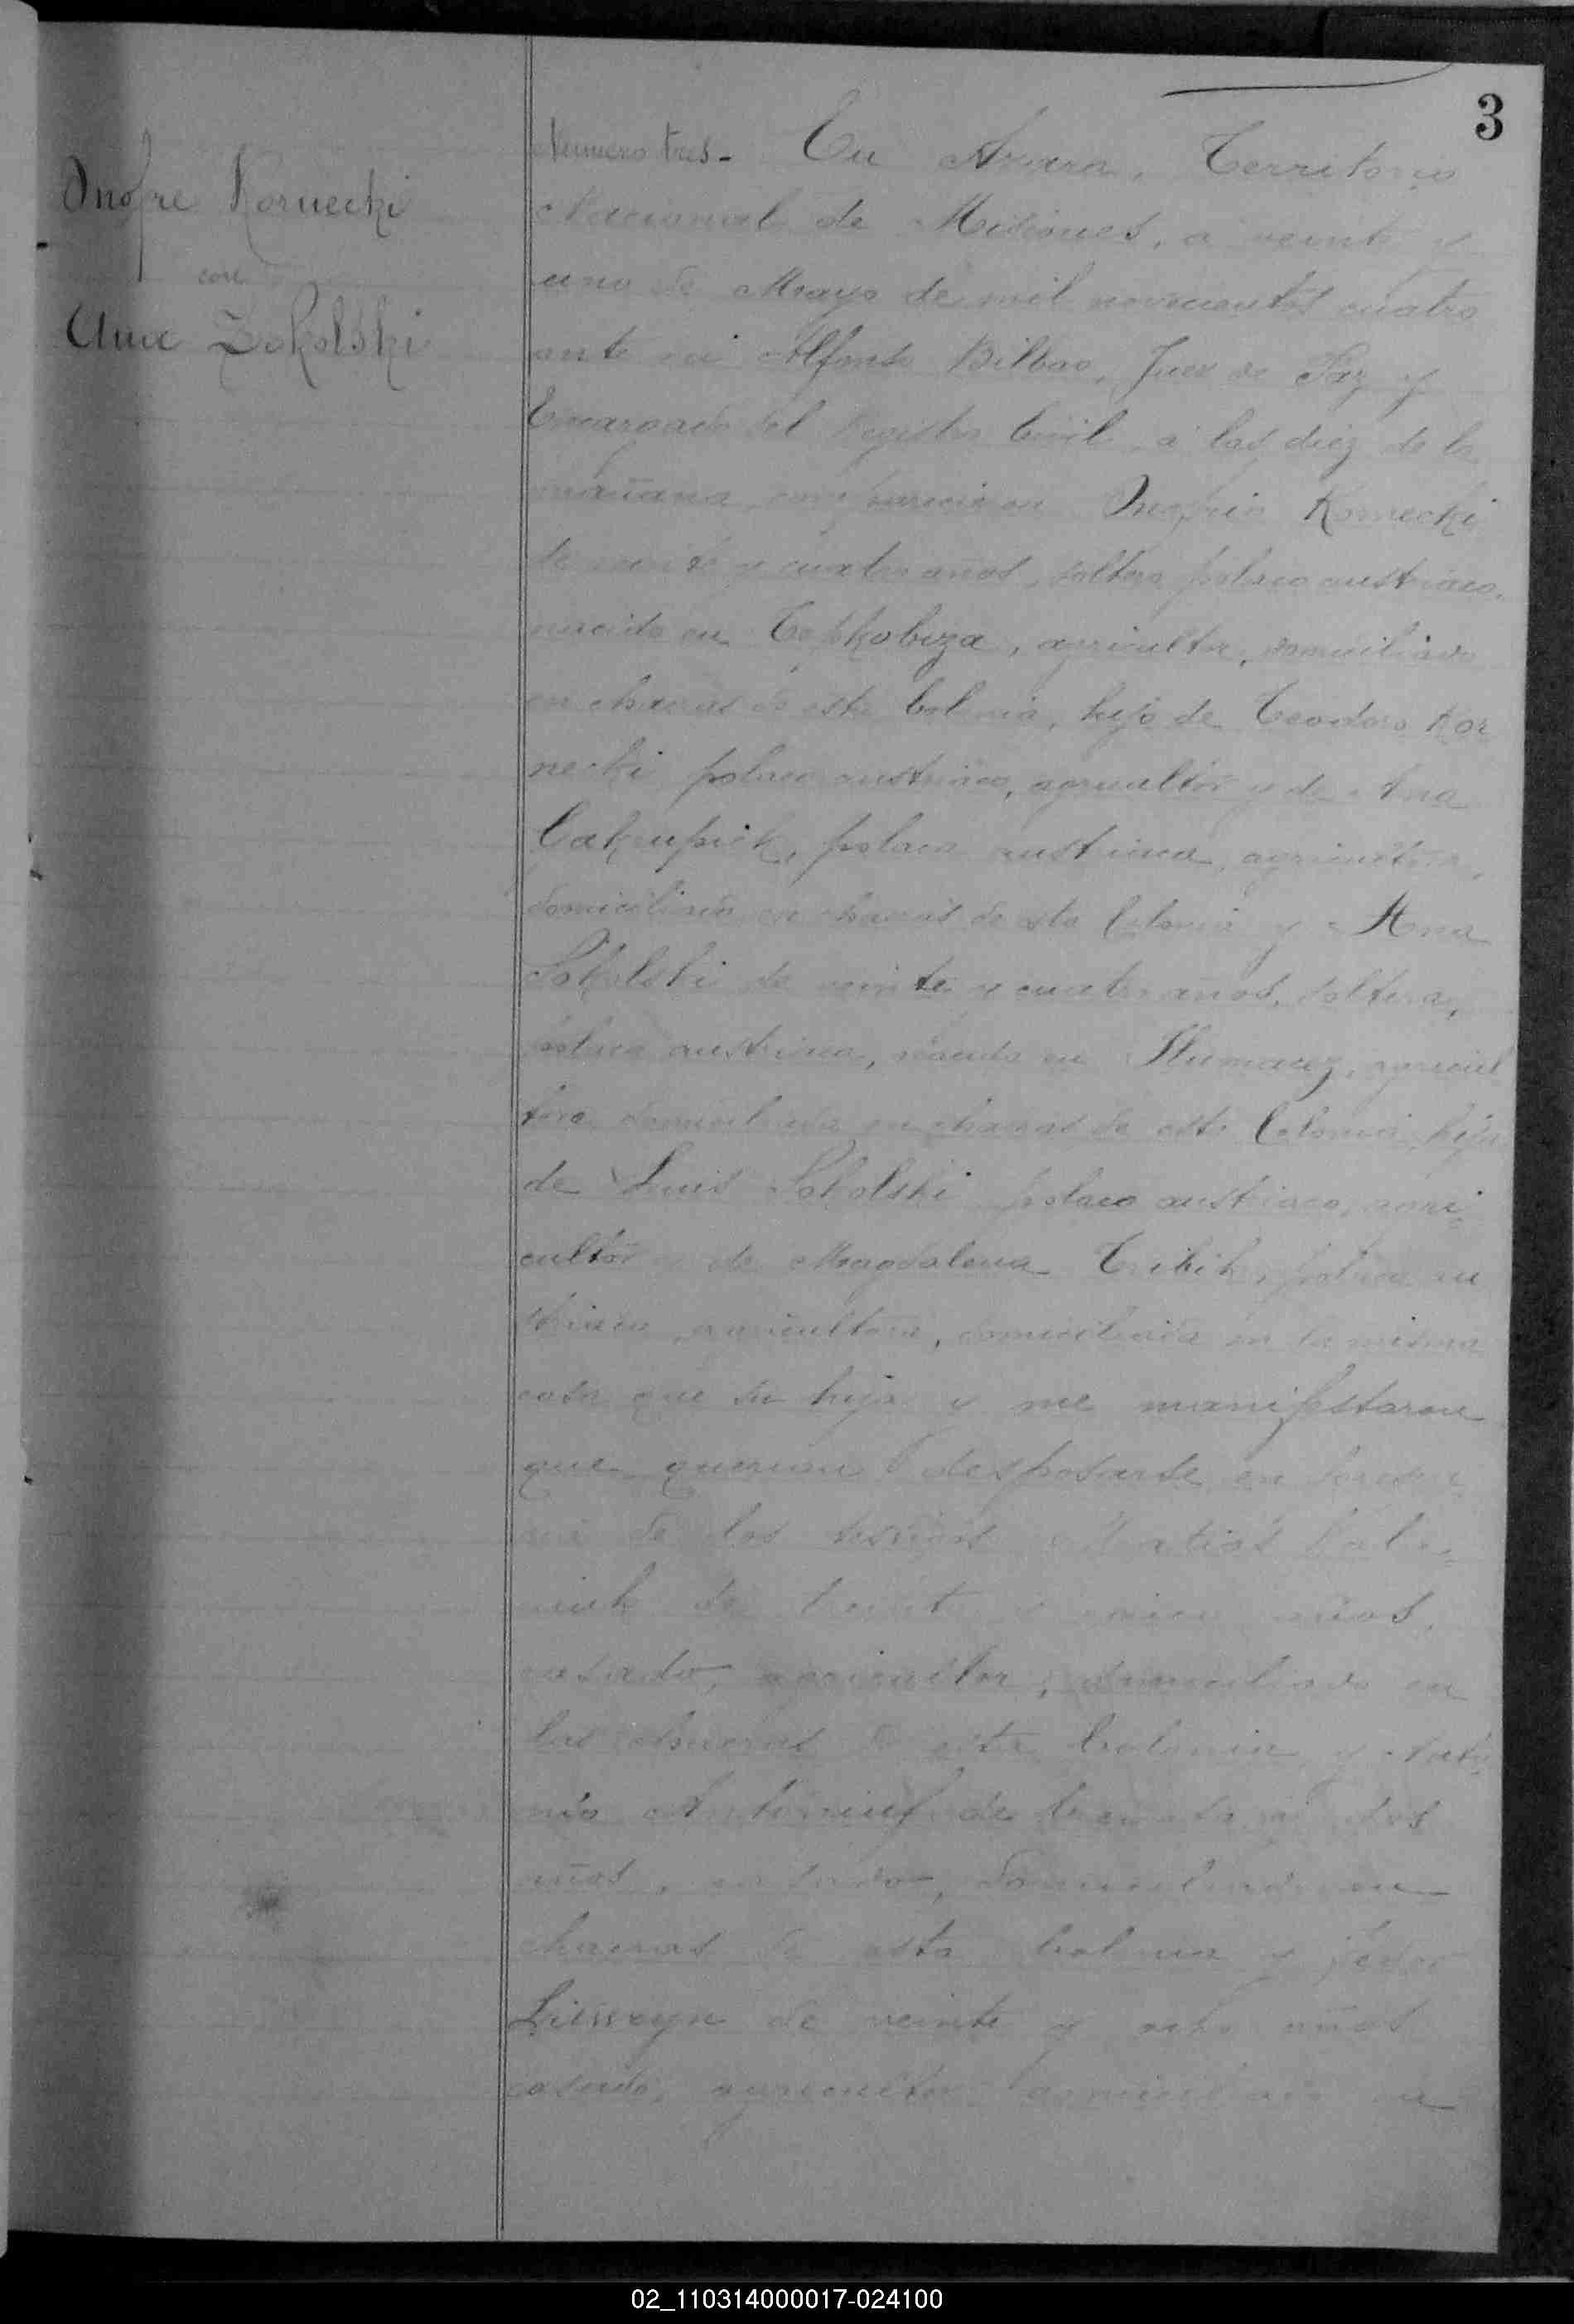 3
Onofre Kornecki
con
Ana Sokolski
Numero tres - En Azara, Territorio
Nacional de Misiones, a veinte y
uno de Mayo de mil novecientos cuatro
ante mi Alfonso Bilbao, Juez de Paz y
Encargado del Registro Civil, a las diez de la
mañana comparecieron Onofrio Kornecki
de veinte y cuatro años, soltero polaco austriaco,
nacido en agricultor, domiciliado
en chacras de esta Colonia, hijo de Teodoro Kor
necki polaco austriaco, agricultor y de Ana
polaca austriaca, agricultora,
domiciliados en chacras de esta Colonia y Ana
Sokolski de veinte y cuatro años, soltera,
polaca austriaca, nacida en agricul
tora domiciliada en chacras de esta Colonia, hija
de Luis Sokolski polaco austriaco, agri-
cultor y de Magdalena polaca au
striaca, agricultora, domiciliada en la misma
casa que su hija y me manifestaron
que querian desposarse en presen-
cia de los testigos Matias
de treinta y años,
casado, agricultor, domiciliado en
las chacras de esta Colonia y
de treinta y dos
años, casado, domiciliado en
chacras de esta Colonia y
de veinte y ocho años
casado, agricultor domiciliado en
02_110314000017-024100